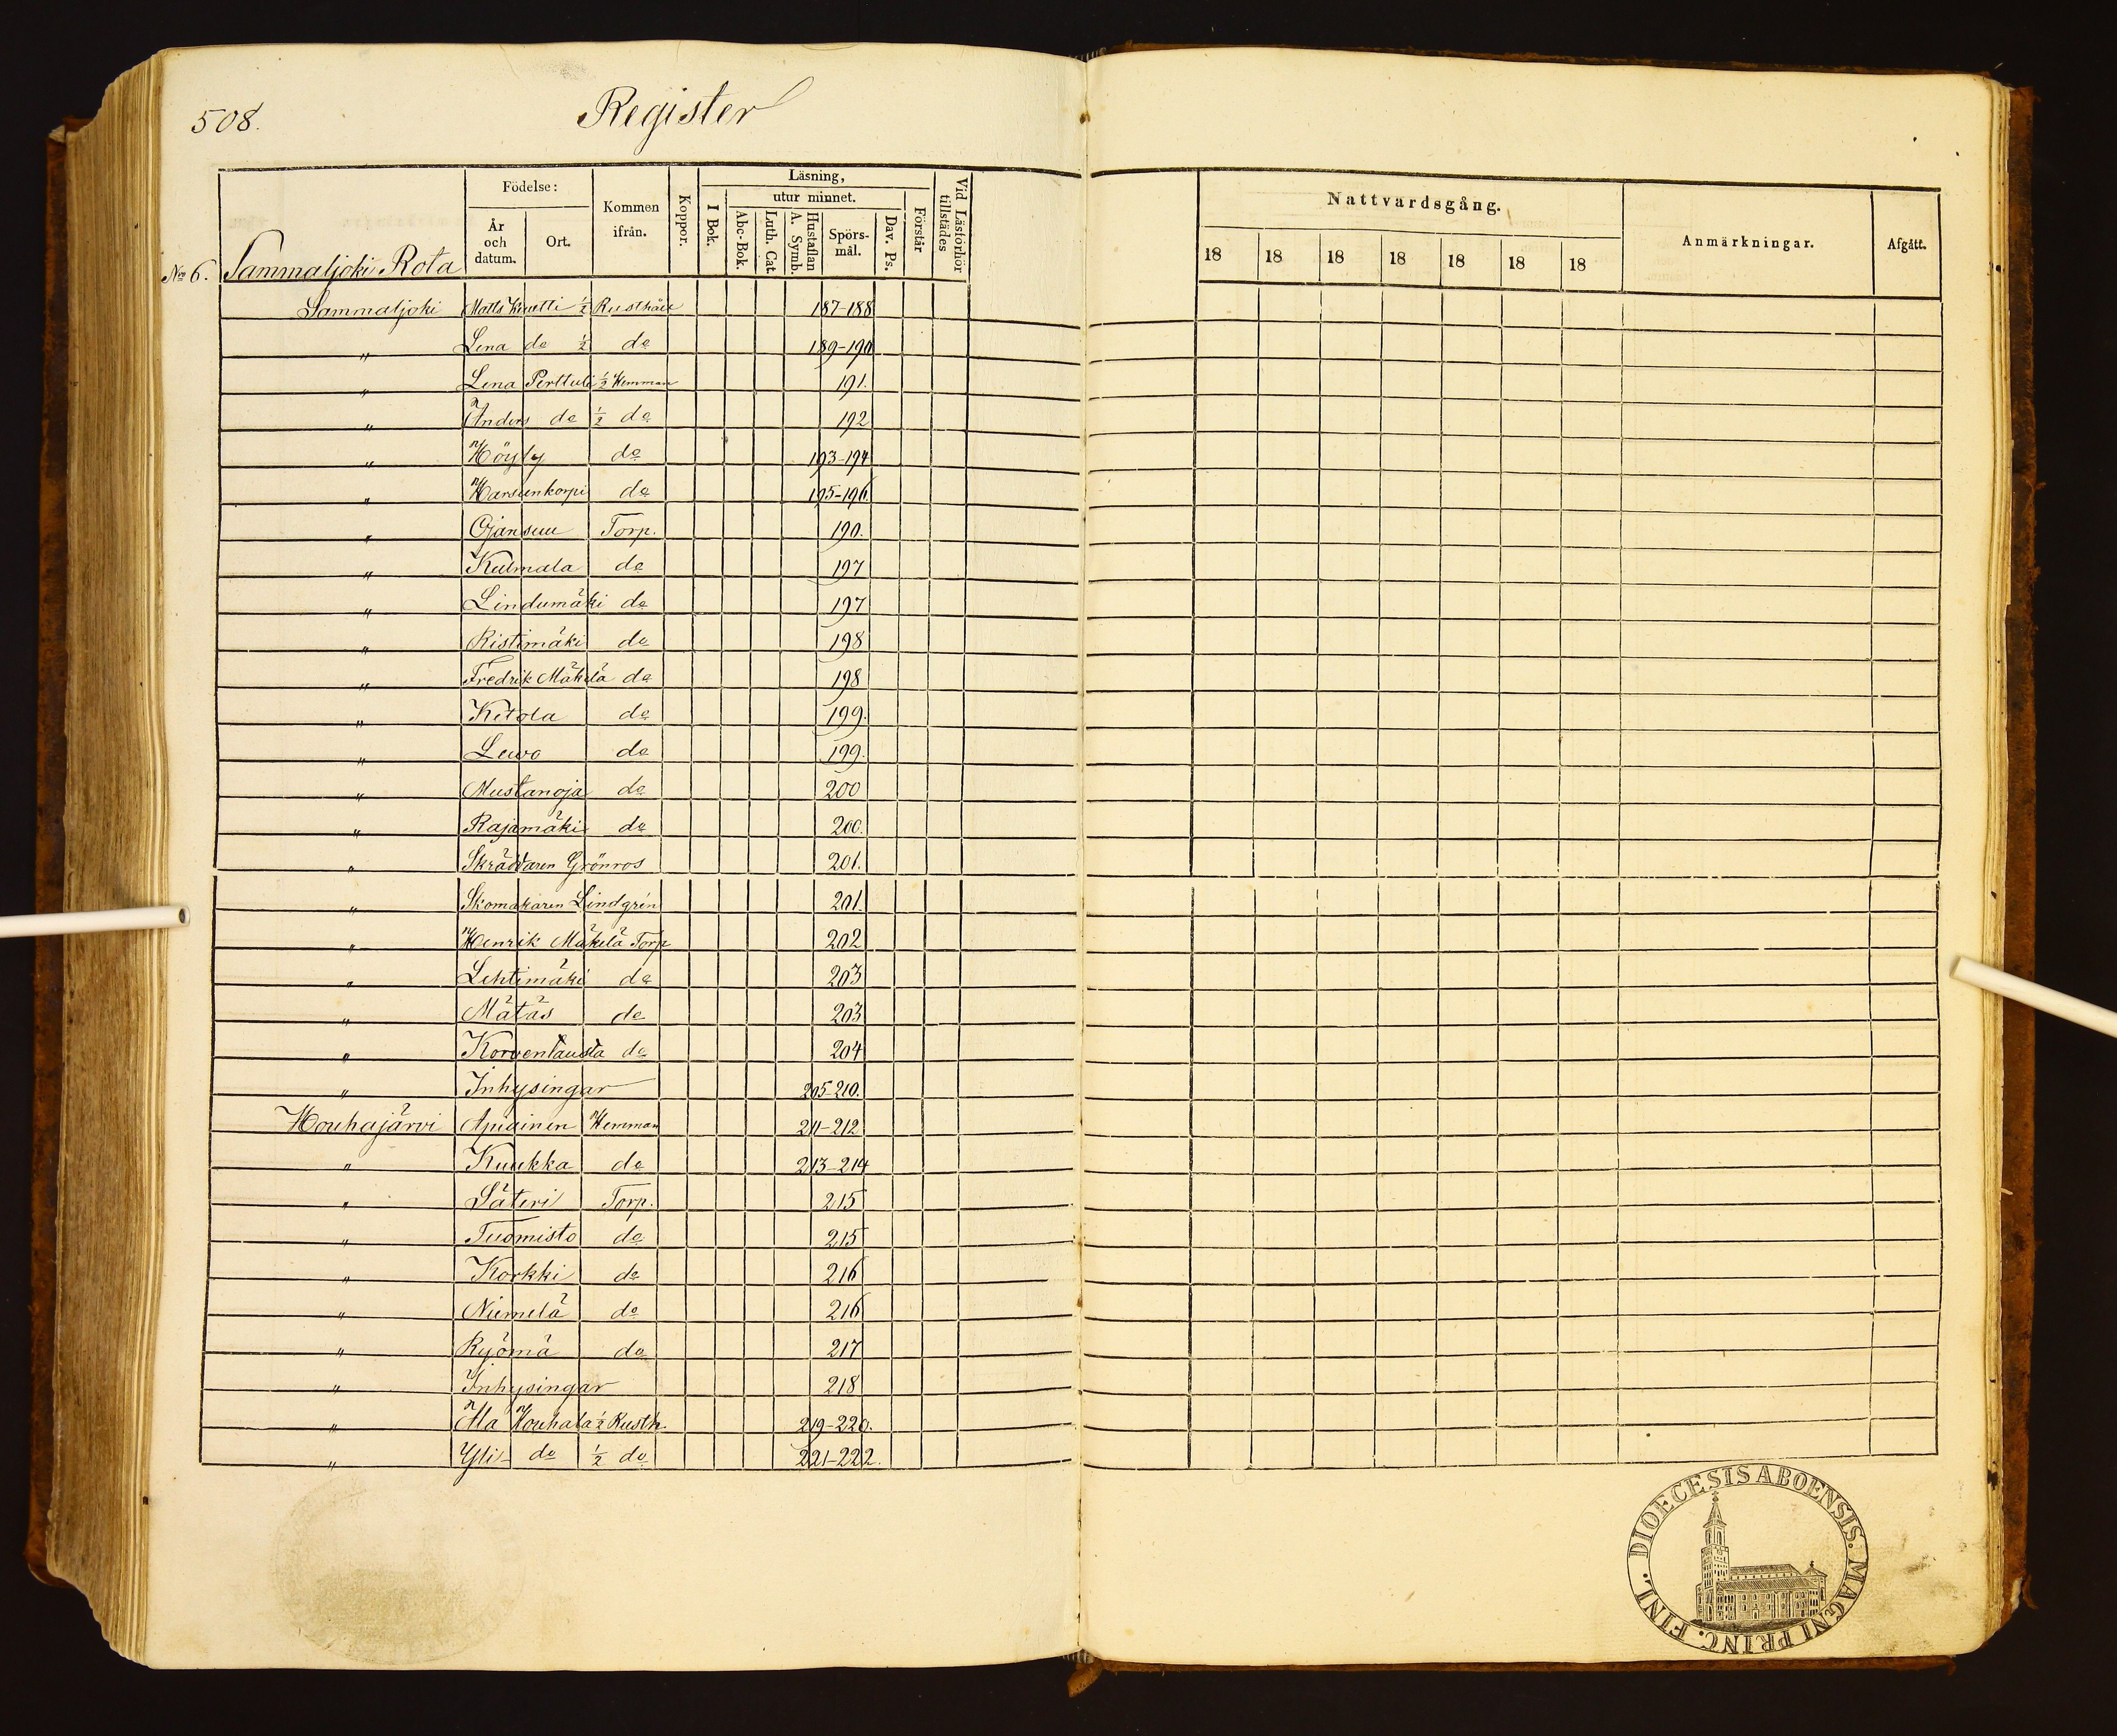 508.
Register
Födelse:
År och datum.
Ort.
Kommen ifrån.
Koppor.
Läsning,
I Bok.
utur minnet.
Abc-Bok.
Luth. Cat.
Hustaflan A. Symb.
Spörs-mål.
Dav. Ps.
Förstår
Vid Läsförhör tillstädes
Nattvardsgång.
18 18 18 18 18 18 18
Anmärkningar.
Afgått.
No 6. Sammaljoki Rota
Sammaljoki Matts Knutti ½ Rusthåll 187-188
" Lena do ½ do 189-190
" Lena Perttuli ½ Hemman 191.
" Anders do ½ do 192
" Höyly do 193-194
" Harsunkorpi do 195-196.
" Ojansuu Torp. 190.
" Kulmala do 197
" Lindumäki do 197
" Ristimäki do 198
" Fredrik Mäkelä do 198
" Ketola do 199.
" Lewo do 199.
" Mustanoja do 200
" Rajamäki do 200.
" Skräddaren Grönros 201.
" Skomakaren Lindgrén 201.
" Henrik Mäkelä Torp 202
" Lehtimäki do 203
" Mätäs do 203
" Korventausta do 204
" Inhysingar 205-210.
Houhajärvi Apiainen Hemman 211-212
" Kuukka do 213-214
" Säteri Torp. 215
" Tuomisto do 215
" Korkki do 216
" Niemelä do 216
" Ryömä do 217
" Inhysingar 218
" Ala Houhala ½ Rusth. 219-220.
" Yli- do ½ do 221-222.
DIOECESIS ABOENSIS. MAGNI PRINC. FINL.